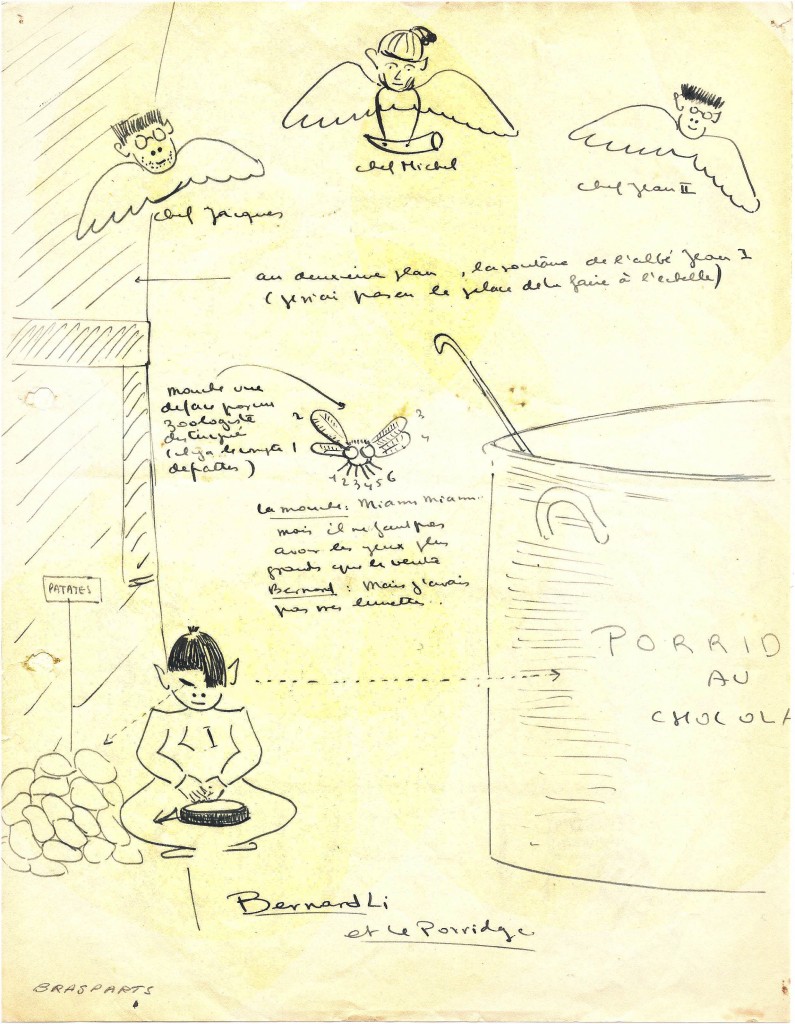 chef Michel
chef Jean II
chef Jacques
au deuxième plan, la soutane de l'abbé Jean I
(je n'ai pas eu la place de la faire à l'echelle)
mouche vue
de face par un
zoologiste
distingué
(il y a le compte
de pattes)
1
2
3
4
1 2 3 4 5 6
La mouche: Miam Miam..
mais il ne faut pas
avoir les yeux plus
grands que le ventre
Bernard: Mais j'avais
pas mes lunettes..
PATATES
PORRID
AU
CHOCOLA
I
Bernard Li
et le Porridge
BRASPARTS